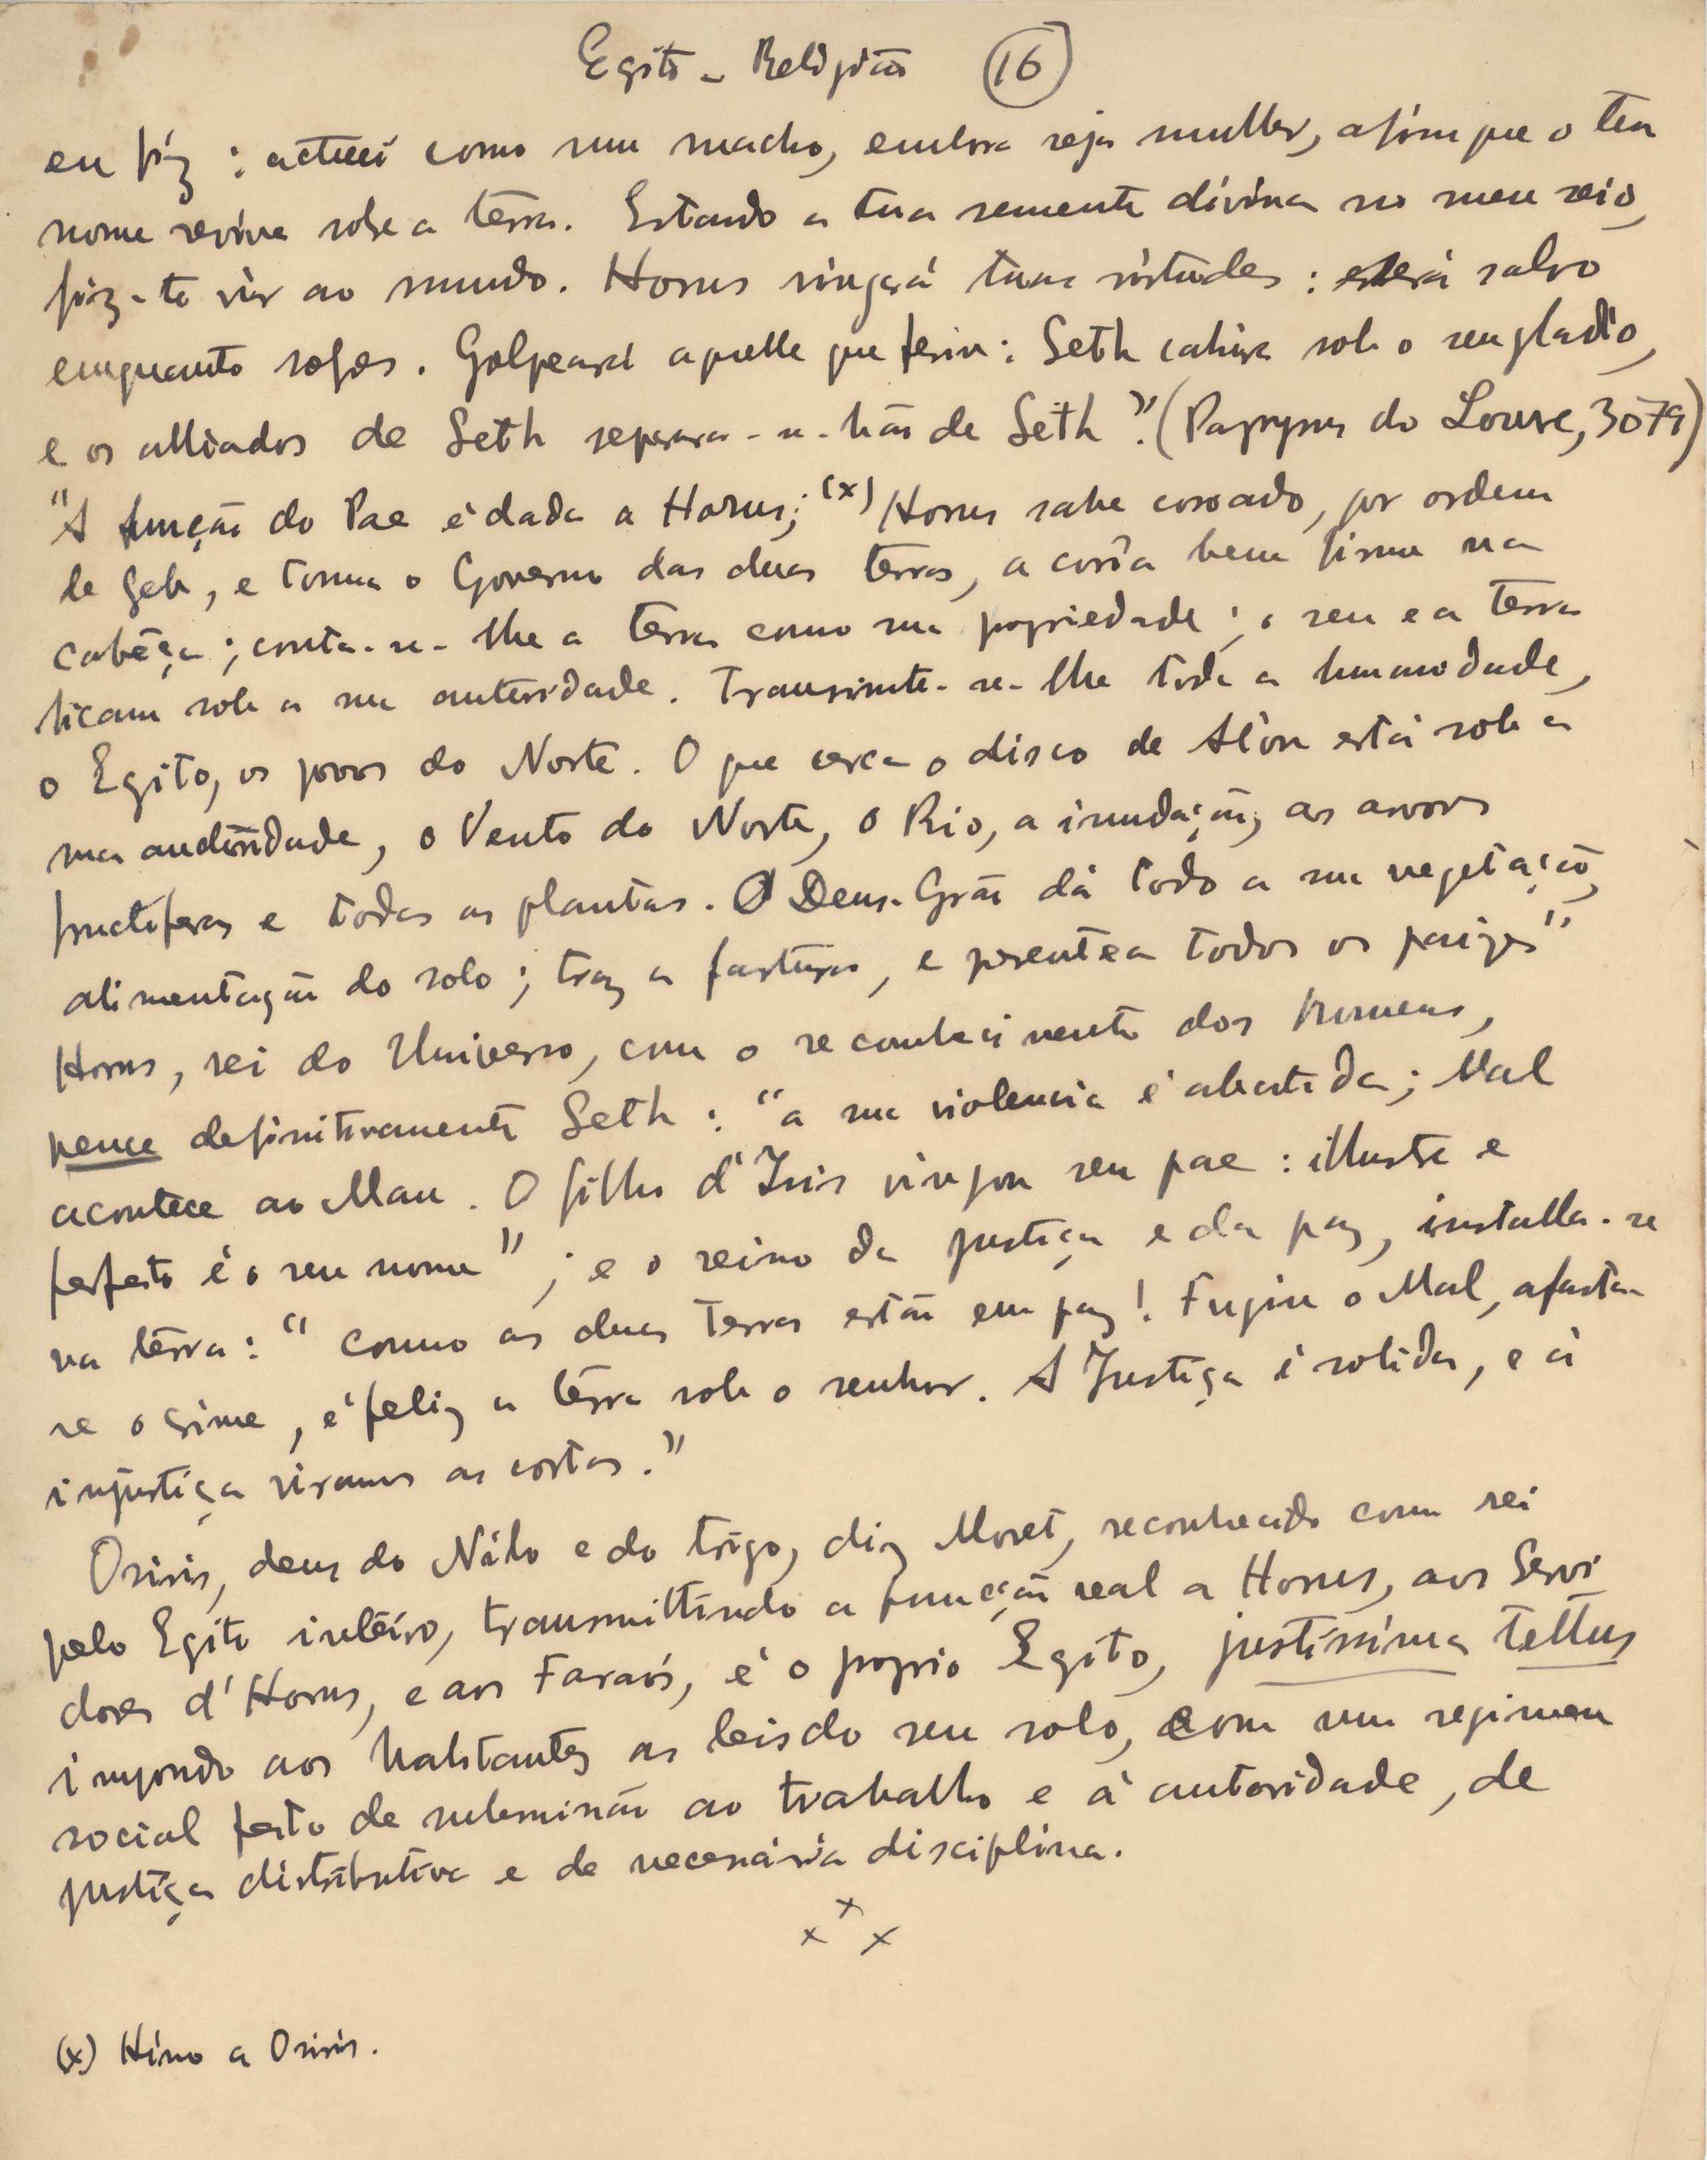 Egito - Religião (16)
eu fiz : actuei como um macho, embora seja mulher, afim que o teu
nome reviva sobre a terra. Estando a tua semente divina no meu seio,
fiz-te vir ao mundo. Horus vingará tuas virtudes : estará salvo
emquanto sofres. Golpeará aquelle que feriu : Seth cahirá sob o seu gladio,
e os alliados de Seth separar-se-hão de Seth". (Papyrus do Louvre, 3079)
"A função do Pae é dada a Horus; (x) Horus sahe coroado, por ordem
de Geb, e toma o Governo das duas terras, a corôa bem firme na
cabêça ; conta-se-lhe a terra como sua propriedade ; o seu e a terra
ficam sob a sua autoridade. Transmite-se-lhe toda a humanidade,
o Egito, os povos do Norte. O que cerca o disco de Aton está sob a
sua autoridade, o Vento do Norte, o Rio, a inundação, as arvores
fructiferas e todas as plantas. O Deus-Grão dá todo a sua vegetação,
alimentação do solo ; traz a fartura, e presentea todos os paizes"
Horus, rei do Universo, com o reconhecimento dos homens,
vence definitivamente Seth : "a sua violencia é abatida ; Mal
acontece ao Mau. O filho d'Isis vingou seu pae : illustre e
perfeito é o seu nome" ; e o reino da justiça e da paz, installa-se
na terra : "como as duas terras estão em paz ! Fugiu o Mal, afasta-
se o crime, é feliz a terra sob o senhor. A Justiça é solida, e á
injustiça viramos as costas."
Osiris, deus do Nilo e do trigo, diz Moret, reconhecido como rei
pelo Egito inteiro, transmittindo a funcção real a Horus, aos Servi
dores d'Horus, e aos Faraós, é o proprio Egito, justissima tellus
impondo aos habitantes as leis do seu solo, com um regimen
social feito de submissão ao trabalho e á autoridade, de
justiça distributiva e de necessária disciplina.
x x x
(x) Hino a Osiris.